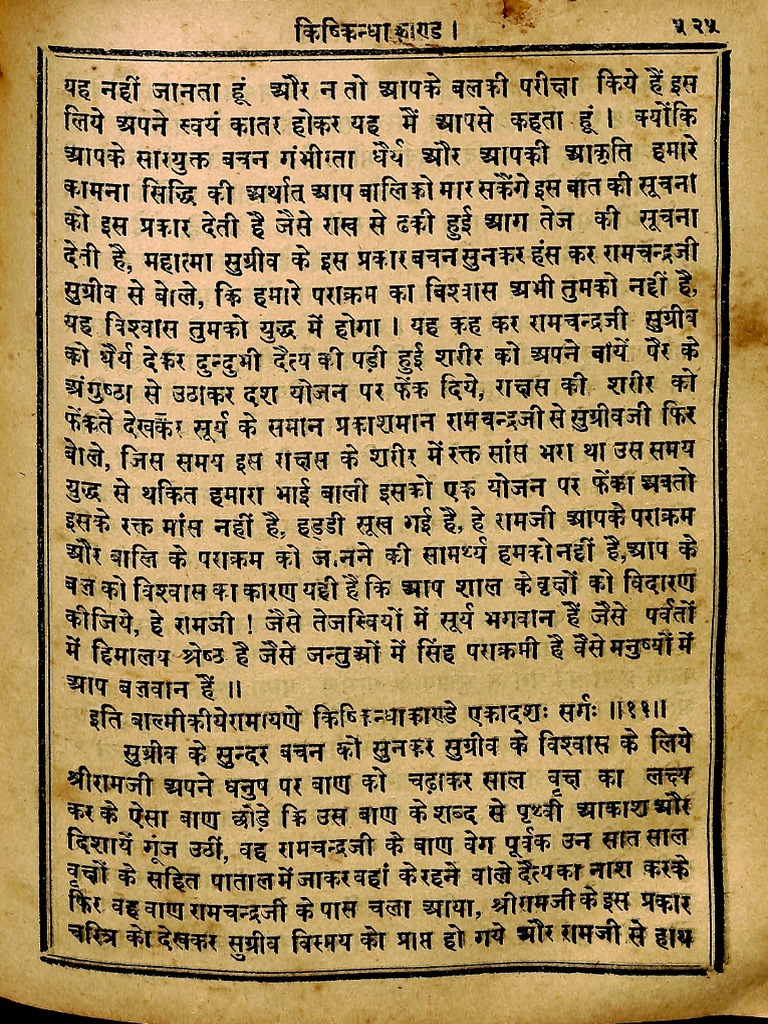 किष्किन्धाकाण्ड । ५२५
यह नहीं जानता हूं और न तो आपके बलकी परीक्षा किये हैं इस
लिये अपने स्वयं कातर होकर यह में आपसे कहता हूं । क्योंकि
आपके सारयुक्त बचन गंभीरता धैर्य और आपकी आकृति हमारे
कामना सिद्धि की अर्थात् आप बालिको मार सकेंगे इस बात की सूचना
को इस प्रकार देती है जैसे राख से ढकी हुई आग तेज की सूचना
देती है, महात्मा सुग्रीव के इस प्रकार बचन सुनकर हंस कर रामचन्द्रजी
सुग्रीव से बोले, कि हमारे पराक्रम का विश्वास अभी तुमको नहीं है,
यह विश्वास तुमको युद्ध में होगा । यह कह कर रामचन्द्रजी सुग्रीव
को धैर्य देकर दुन्दुभी दैत्य की पड़ी हुई शरीर को अपने बायें पैर के
अंगुष्ठा से उठाकर दश योजन पर फेंक दिये, राक्षस की शरीर को
फेंकते देखकर सूर्य के समान प्रकाशमान रामचन्द्रजी से सुग्रीवजी फिर
बोले, जिस समय इस राक्षस के शरीर में रक्त सांस भरा था उस समय
युद्ध से थकित हमारा भाई बाली इसको एक योजन पर फेंका अबतो
इसके रक्त मांस नहीं है, हड्डी सूख गई है, हे रामजी आपके पराक्रम
और बालि के पराक्रम को जानने की सामर्थ्य हमको नहीं है,आप के
बल को विश्वास का कारण यही है कि आप शाल के वृक्षों को विदारण
कीजिये, हे रामजी ! जैसे तेजस्वियों में सूर्य भगवान हैं जैसे पर्वतों
में हिमालय श्रेष्ठ है जैसे जन्तुओं में सिंह पराक्रमी है वैसे मनुष्यों में
आप बलवान हैं ॥
इति बाल्मीकीयेरामायणे किष्किन्धाकाण्डे एकादशः सर्गः ॥११॥
सुग्रीव के सुन्दर बचन को सुनकर सुग्रीव के विश्वास के लिये
श्रीरामजी अपने धनुष पर बाण को चढ़ाकर साल वृक्ष का लक्ष्य
कर के ऐसा बाण छोड़े कि उस बाण के शब्द से पृथ्वी आकाश और
दिशायें गूंज उठीं, वह रामचन्द्रजी के बाण वेग पूर्वक उन सात साल
वृक्षों के सहित पाताल में जाकर वहां के रहने वाले दैत्यका नाश करके
फिर वह वाण रामचन्द्रजी के पास चला आया, श्रीरामजी के इस प्रकार
चरित्र को देखकर सुग्रीव विस्मय को प्राप्त हो गये और रामजी से हाथ